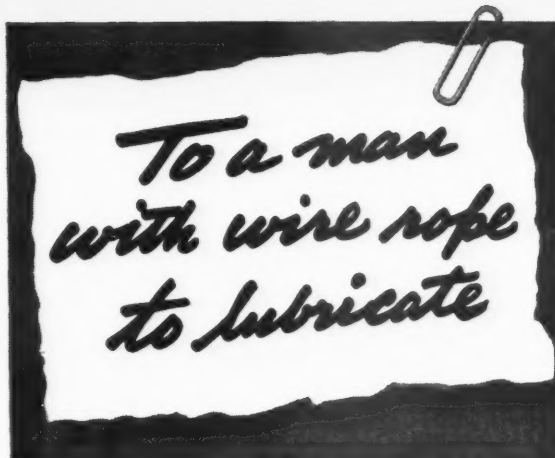 To a man
with wire rope
to lubricate